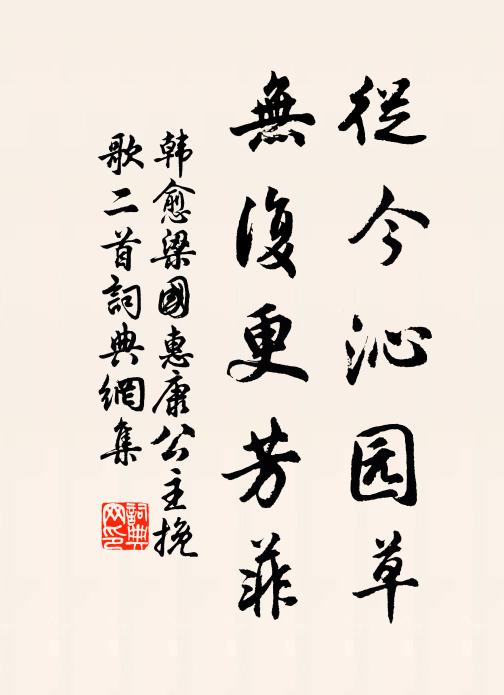 從今沁园草
無復更芳菲
韩愈梁國惠康公主挽
歌二首詞典網集
詞典网印